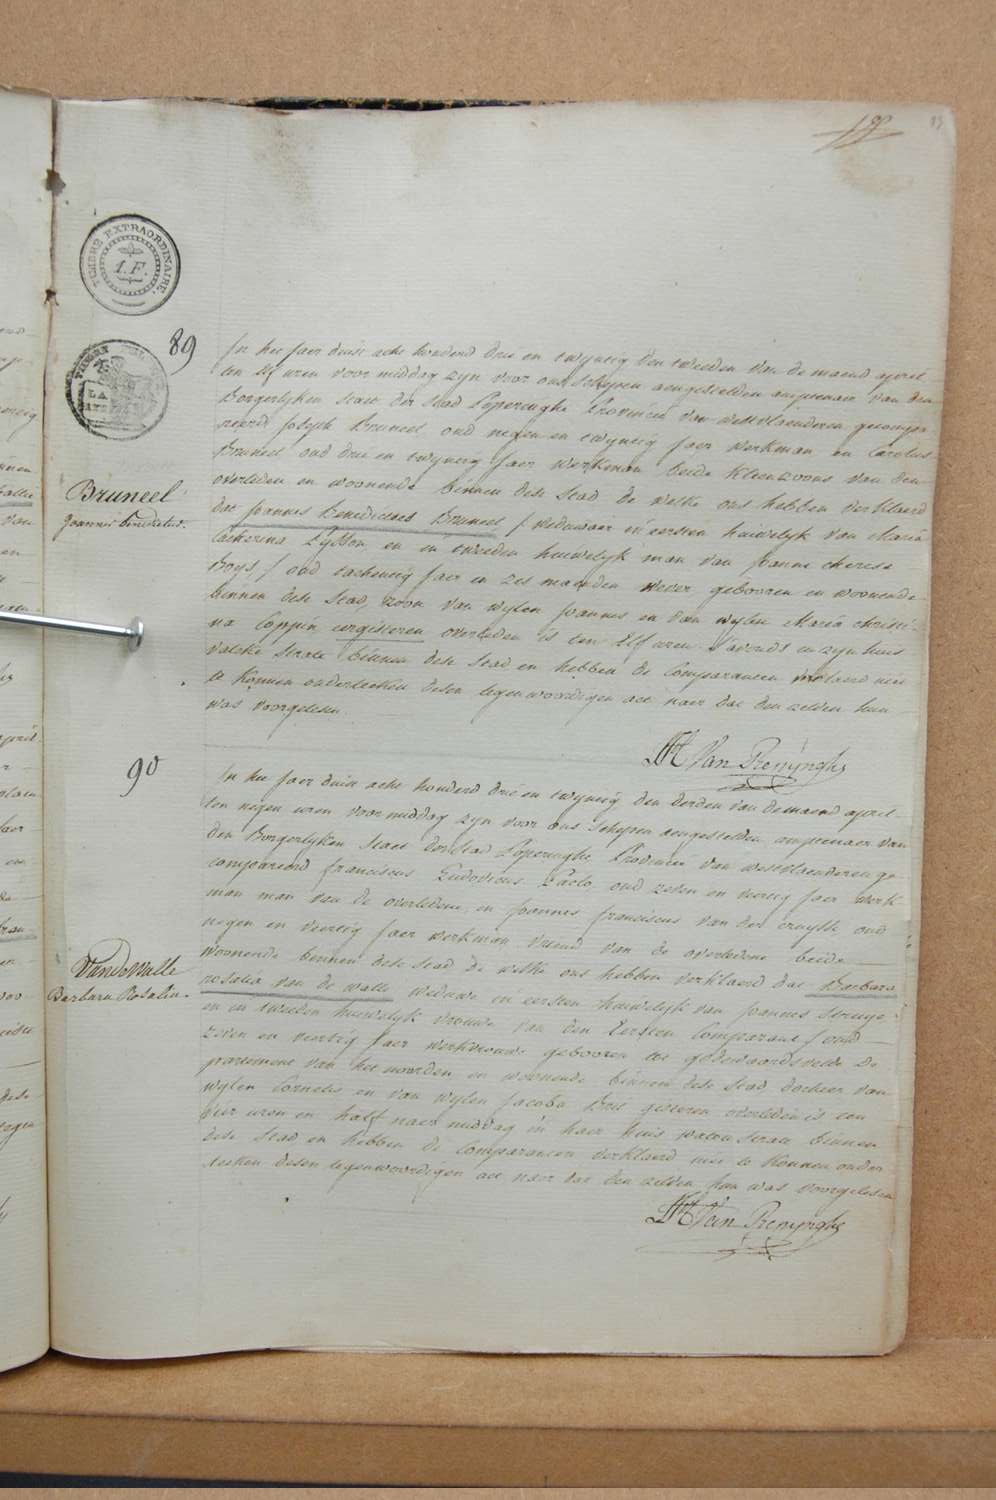 TIMBRE EXTRAORDINAIRE.
1.F.
89
Bruneel
Joannes Benedictus.
In het jaer duist acht honderd drie en twyntig den tweeden van de maend april
ten elf uren voor middag zyn voor ons schepen aengestelden amptenaer van den
Borgerlyken staet der stad Poperinghe Provincie van westvlaenderen gecompa
reerd Joseph Bruneel oud negen en twyntig jaer werkman en Carolus
Bruneel oud drie en twyntig jaer werkman beide kleenzoons van den
overleden en woonende binnen dese stad de welke ons hebben verklaerd
dat Joannes Benedictus Bruneel / weduwaer in eersten huwelyk van Maria
Catherina en in tweeden huwelyk man van Joanne Therese
Boys / oud tachentig jaer en zes maenden wever gebooren en woonende
binnen dese stad, zoon van wylen Joannes en van wylen Maria Christi-
na Coppin eergisteren overleden is ten elf uren s'avonds in zyn huis
valcke straet binnen dese stad en hebben de Comparanten verklaerd niet
te konnen onderteeken desen tegenwoordigen act naer dat den zelven hun
was voorgelesen
Van Renynghe
90
VandeWalle
Barbara Rosalia.
In het jaer duist acht honderd drie en twyntig den derden van de maend april
ten negen uren voor middag zyn voor ons schepen aengestelden amptenaer van
den Borgerlyken staet der stad Poperinghe Provincie van westvlaenderen ge-
compareerd franciscus Ludovicus oud zeven en veertig jaer werk
man man van de overledene, en Joannes franciscus van der cruysse, oud
negen en veertig jaer werkman vriend van de overledene beide
woonende binnen dese stad de welke ons hebben verklaerd dat Barbara
rosalia van de walle weduwe in eersten huwelyk van Joannes
en in tweeden huwelyk vrouwe van den Eersten Comparant / oud
zeven en veertig jaer werkvrouwe gebooren tot godewaersvelde De
partement van het noorden en woonende binnen dese stad, dochter van
wylen Cornelis en van wylen Jacoba gisteren overleden is ten
vier uren en half naer middag in haer huis watou straet binnen
dese stad en hebben de Comparanten verklaerd niet te konnen onder
teeken desen tegenwoordigen act naer dat den zelven hun was voorgelesen
Van Renynghe